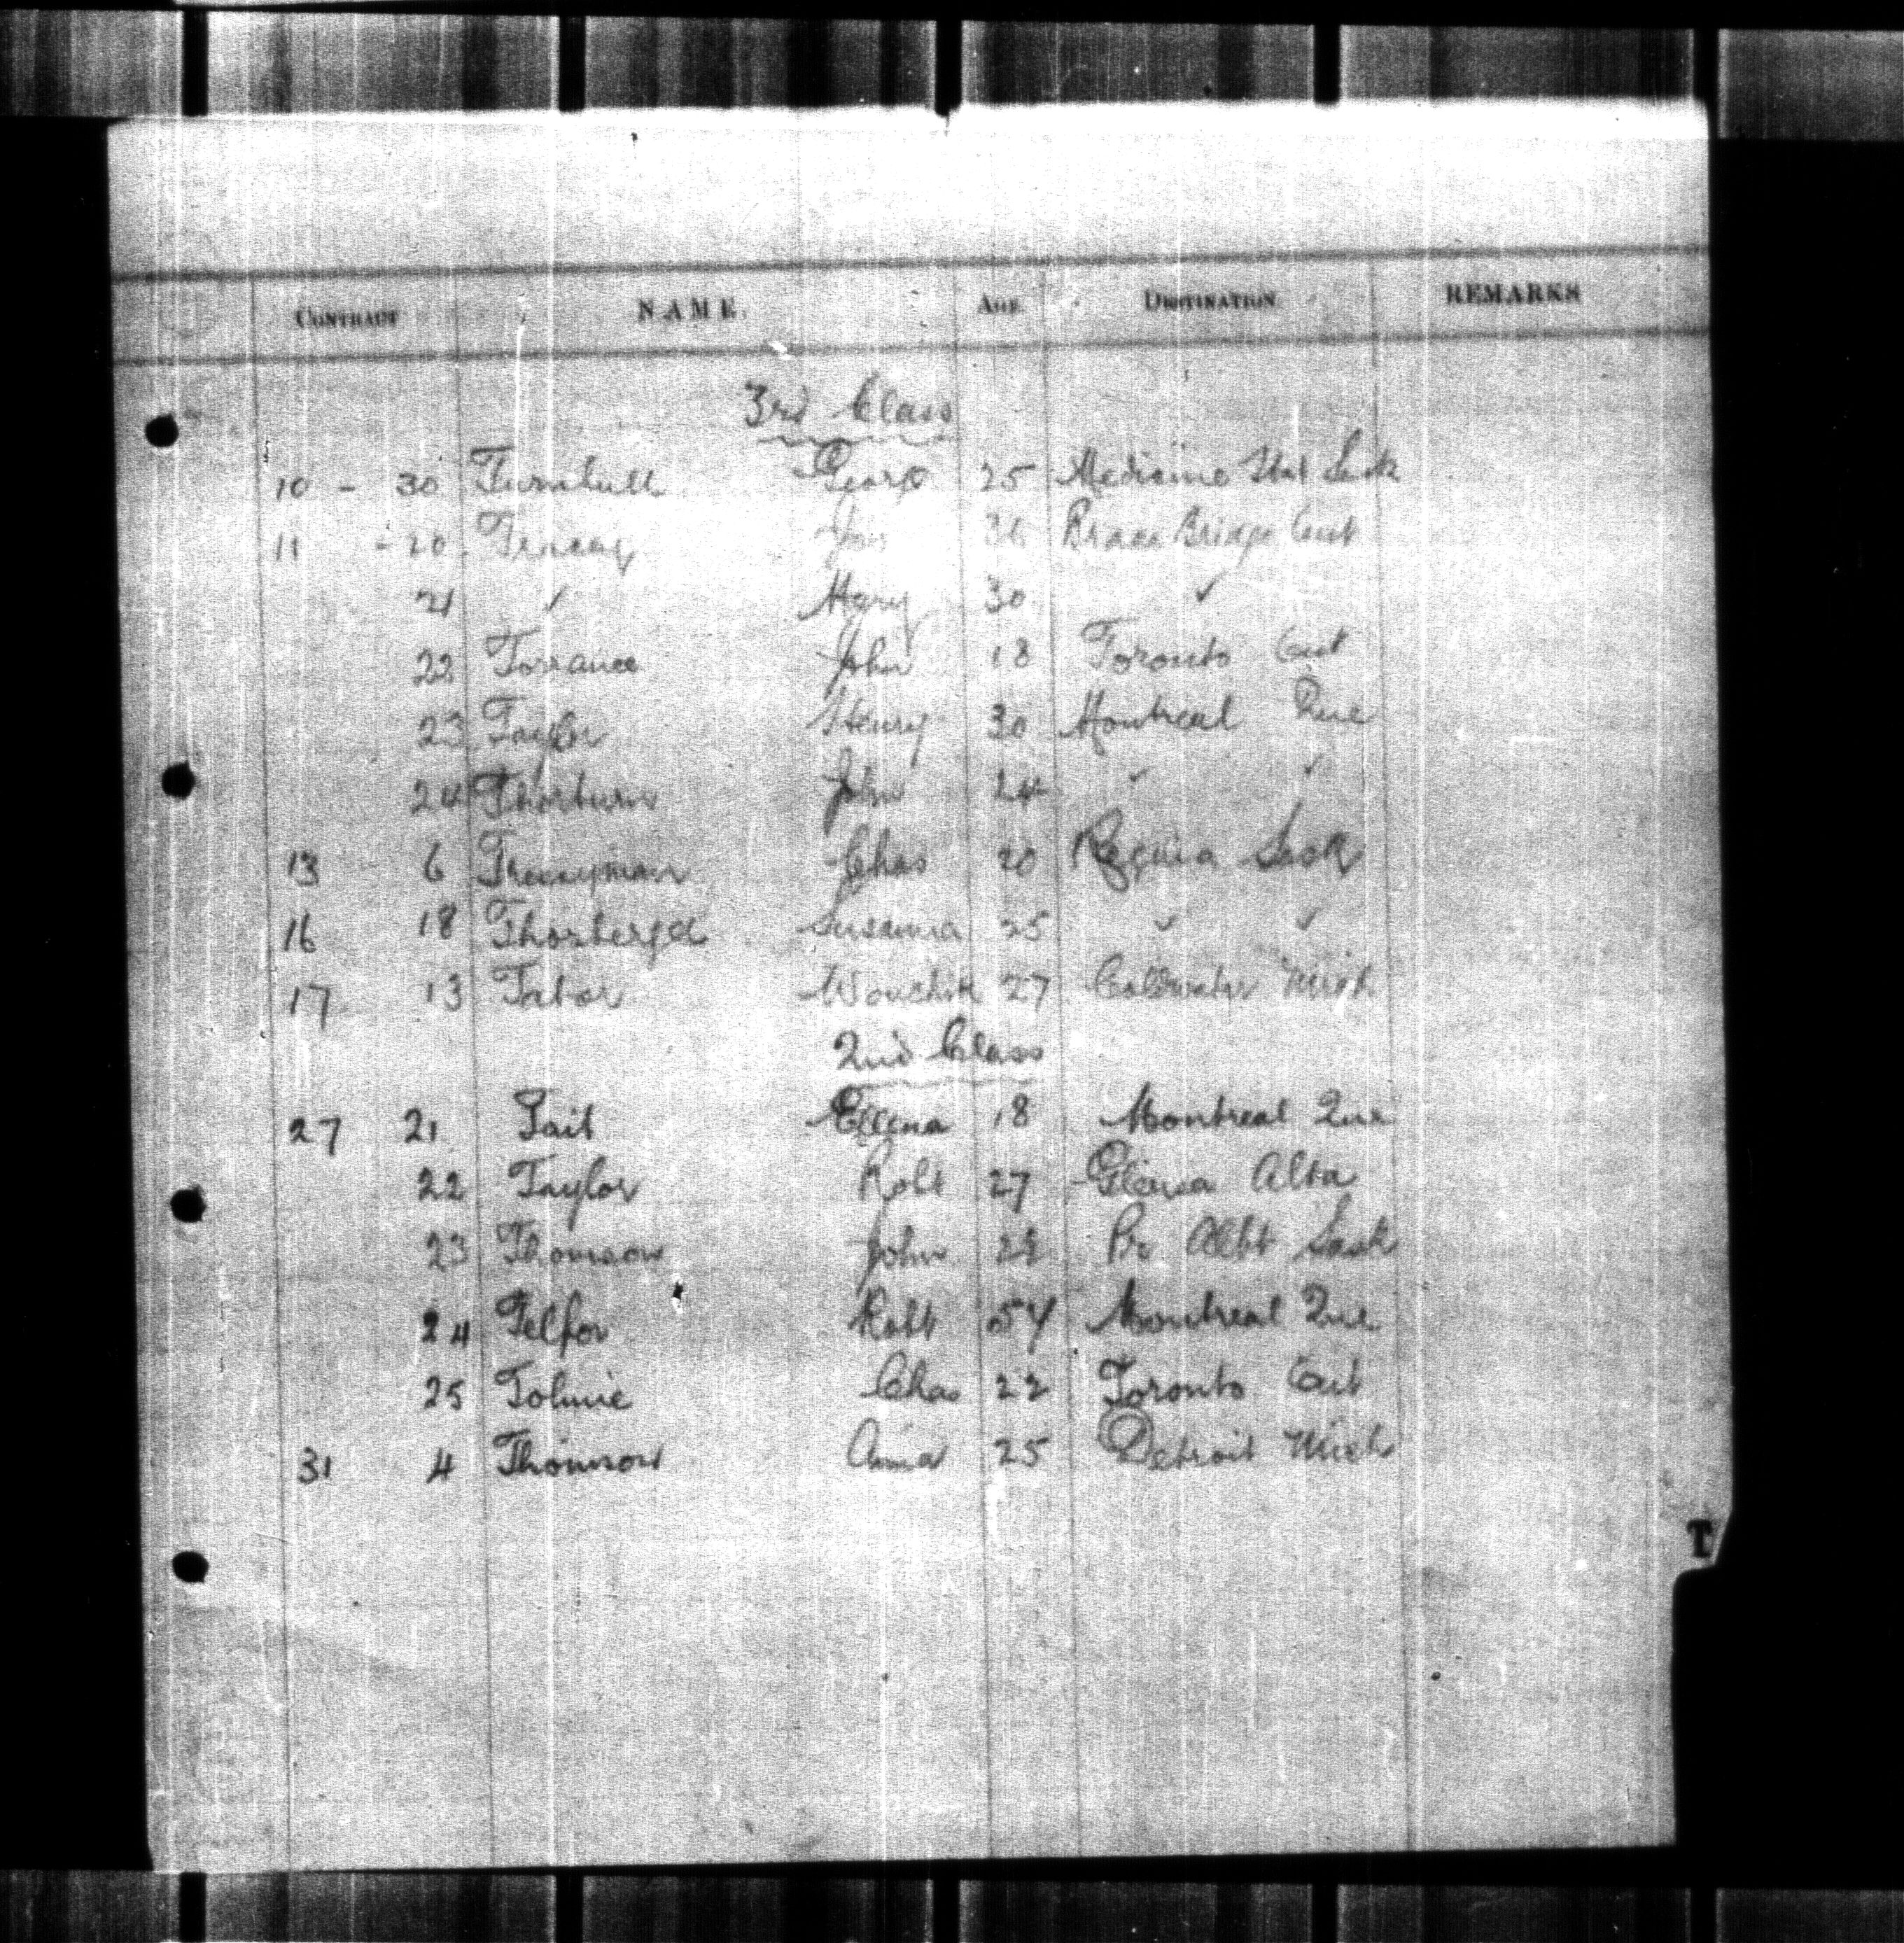 CONTRACT NAME AGE DESTINATION REMARKS
3rd Class
10 - 30 Turnbull George 25 Medicine Hat Sask
11 - 20 Jas 36 Brace Bridge Ont
21 ✓ Mary 30 ✓
22 Torrance John 18 Toronto Ont
23 Taylor Henry 30 Montreal Que
24 Thorburn John 24 ✓ ✓
13 6 Chas 20 Regina Sask
16 18 Susanna 25 ✓ ✓
17 13 Tabor 27 Coldwater Mich
2nd Class
27 21 Tait Ellena 18 Montreal Que
22 Taylor Robt 27 Alta
23 Thomson John 22 Pr Albt Sask
24 Telfor Robt 54 Montreal Que
25 Tolmie Chas 22 Toronto Ont
31 4 Thomson Anna 25 Detroit Mich
T